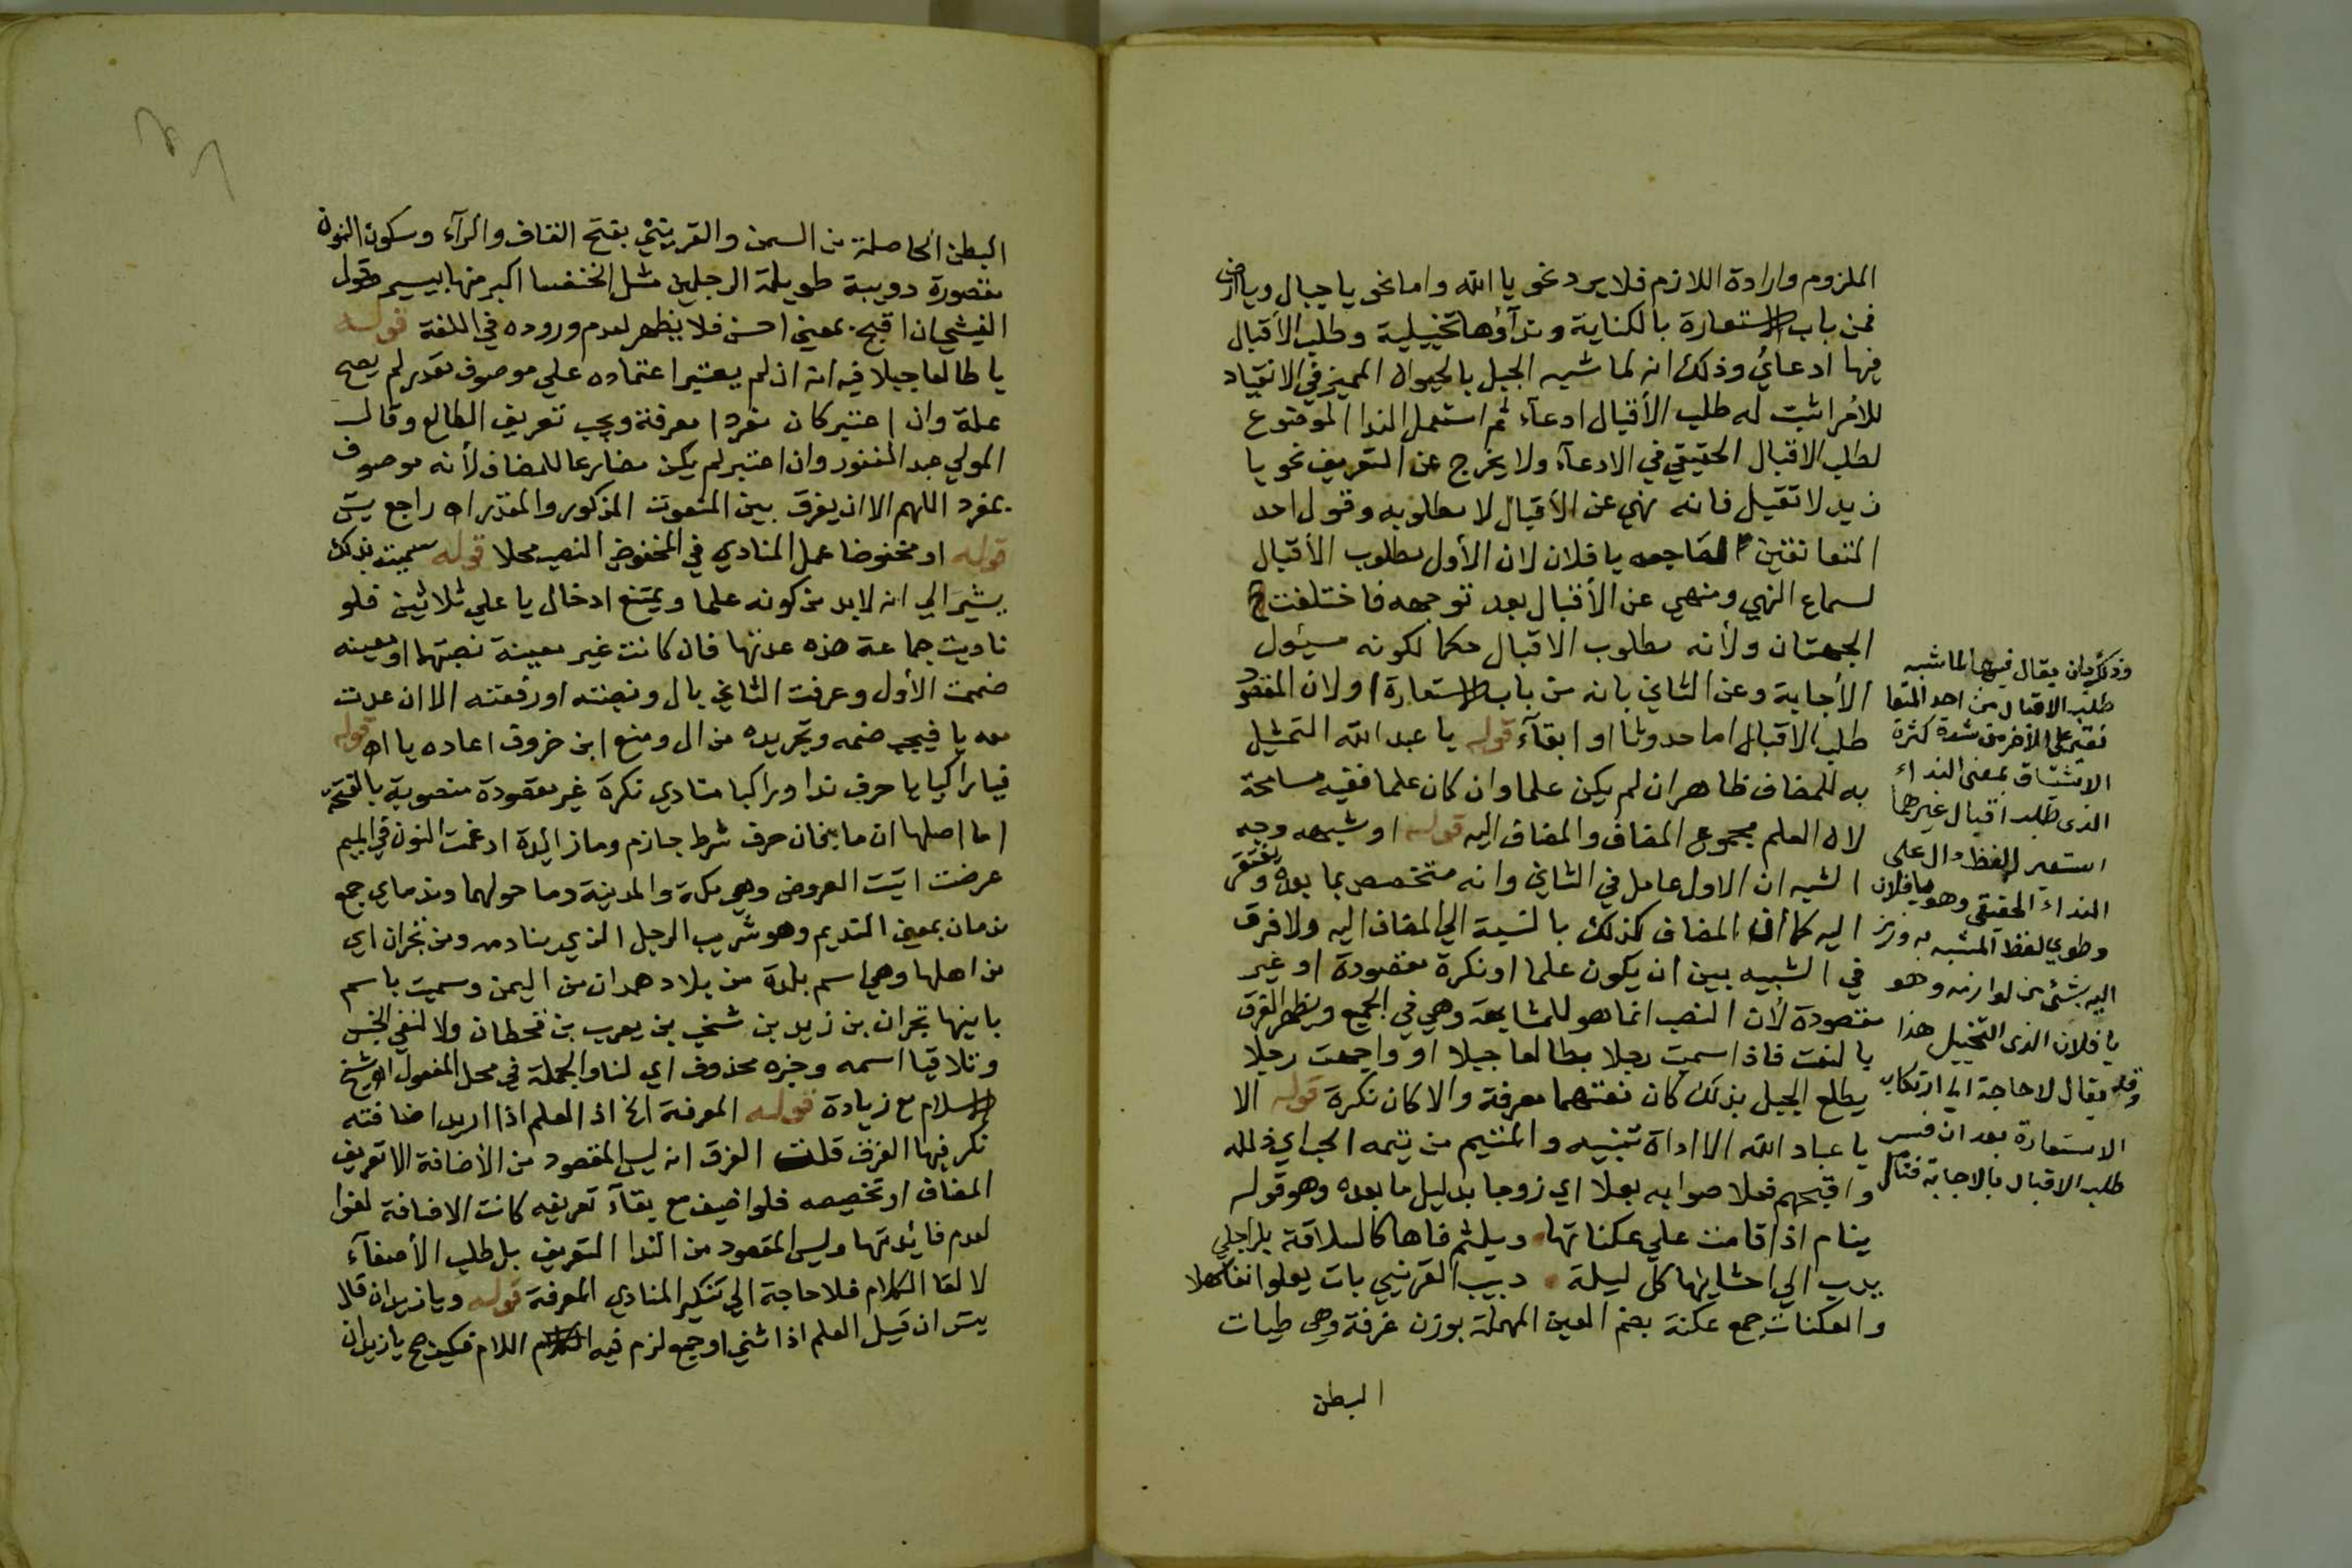 الملزوم وارادة اللازم فلا يرد نحو يا الله واما نحو يا جبال ويا ارض
فمن باب الاستعارة بالكناية وندآؤها تخييلية وطلب الأقبال
فيها ادعائي وذلك انه لما شبه الجبل بالحيوان المميز في الانقياد
للأمر اثبت له طلب الأقبال ادعآء ثم استعمل الندا الموضوع
لطلب الاقبال الحقيقي في الادعآء ولا يخرج عن التعريف نحو يا
زيد لا تقبل فانه نهي عن الأقبال لا مطلوبه وقول احد
المتعانقين لصاحبه يا فلان لان الأول مطلوب الأقبال
لسماع النهي ومنهي عن الأقبال بعد توجهه فاختلفت
الجهتان ولأنه مطلوب الاقبال حكما لكونه مسئول
الأجابة وعن الثاني بانه من باب الاستعارة او لان المقصود
طلب الاقبال اما حدوثا او ابقآء قوله يا عبد الله التمثيل
به للمضاف ظاهر ان لم يكن علما وان كان علما ففيه مسامحة
لان العلم مجموع المضاف والمضاف اليه قوله او شبهه وجه
الشبه ان الاول عامل في الثاني وانه متخصص بما بعده ومفتقر
اليه كما ان المضاف كذلك بالنسبة الي المضاف اليه ولا فرق
في الشبيه بين ان يكون علما او نكرة مقصودة او غير
مقصودة لأن النصب انما هو للمشابهة وهي في الجميع ويظهر الفرق
بالنعت فاذا سميت رجلا بطالعا جبلا او واجهت رجلا
يطلع الجبل بذلك كان نعتهما معرفة والا كان نكرة قوله الا
يا عباد الله الا اداة تنبيه والمتيم من تيمه الحب اي ذلله
واقبحهم فعلا صوابه بعلا اي زوجا بدليل ما بعده وهو قوله
ينام اذا قامت علي عكناتها ويلثم فاها كالسلافة
يدب الي احشايها كل ليلة دبيب القرنبي بات يعلو نقا سهلا
والعكنات جمع عكنة بضم العين المهملة بوزن غرفة وهي طيات
البطن
وذلك بان يقال فيها لما شبه
طلب الاقبال من احد المتعا
نقين علي الأخر من شدة كثرة
الاشتياق بمعني النداء
الذي طلب اقبال غيرهما
استعير اللفظ دال علي
النداء الحقيقي وهو يا فلان
وطوي لفظ المشبه به ورمز
اليه بشئ من لوازمه وهو
يا فلان الذي التخييل هذا
وقد يقال لا حاجة الي ارتكاب
الاستعارة بعد ان فسر
طلب الاقبال بالاجابة فتأمل
البطن الحاصلة من السمن والقرنبي بفتح القاف والرآء وسكون النون
مقصورة دويبة طويلة الرجلين مثل الخنفسا اكبر منها بيسير وقول
الفيشي ان اقبح بمعني احسن فلا يظهر لعدم وروده في اللغة قوله
يا طالعا جبلا فيه انه ان لم يعتبر اعتماده علي موصوف مقدر لم يصح
عمله وان اعتبر كان مفردا معرفة ويجب تعريف الطالع وقال
المولي عبد الغفور وان اعتبر لم يكن مضارعا للمضاف لأنه موصوف
بمفرد اللهم الا ان يفرق بين المنعوت المذكور والمقدر اه راجع يس
قوله او مخفوضا عمل المنادي في المخفوض النصب محلا قوله سميته بذلك
يشير الي انه لا بد من كونه علما ويمتنع ادخال يا علي ثلاثين فلو
ناديت جماعة هذه عدتها فان كانت غير معينة نصبتهما او معينه
ضممت الأول وعرفت الثاني بال ونصبته او رفعته الا ان عدت
معه يا فيجب ضمه وتجريده من ال ومنع ابن خروف اعاده يا اه قوله
فيا راكبا يا حرف ندا وراكبا منادي نكرة غير مقصودة منصوبة بالفتحة
اما اصلها ان ما فان حرف شرط جازم وما زائدة ادغمت النون في الميم
عرضت اتيت العروض وهي مكة والمدينة وما حولهما ونداماي جمع
ندمان بمعني النديم وهو شريب الرجل الذي ينادمه ومن نجران اي
من اهلها وهي اسم بلدة من بلاد همدان من اليمن وسميت باسم
بانيها نجران بن زيد بن يشجب بن يعرب بن قحطان ولا لنفي الجنس
وتلاقيا اسمه وخبره محذوف اي لنا والجملة في محل المفعول اه شيخ
الاسلام مع زيادة قوله المعرفة الخ اذ العلم اذا اريد اضافته
نكر فيها الفرق قلت الفرق انه ليس المقصود من الأضافة الا تعريف
المضاف او تخصيصه فلو اضيف مع بقآء تعريفه كانت الاضافة لغوا
لعدم فائدتها وليس المقصود من الندا التعريف بل طلب الأصغآء
لالقا الكلام فلا حاجة الي تنكير المنادي المعرفة قوله ويا زيدان قال
يس ان قيل العلم اذا ثني او جمع لزم فيه اللام فكيف صح يا زيدان